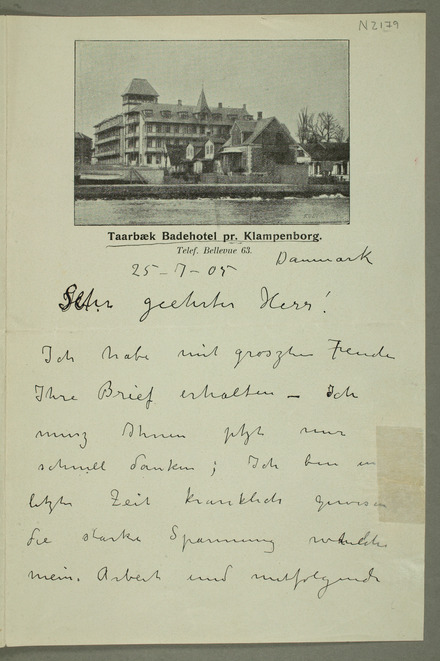 N 2179
Taarbæk Badehotel pr. Klampenborg.
Telef. Bellevue 63.
25-7-05 Danmark
Sehr geehrter Herr!
Ich habe mit groszten Freuden
Ihre Brief erhalten – Ich
musz Ihnen jetzt nur
schnell danken; Ich ben in
letzte Zeit kranklich gewesen
die starke Spannung welche
mein. Arbeit und mitfolgende